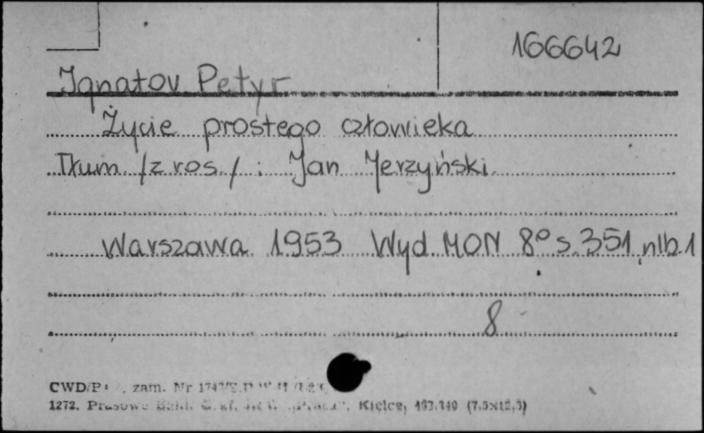 166642
Ignatov Petyr
Życie prostego człowieka
Tłum /z ros./ : Jan Jerzyński
Warszawa 1953 Wyd. MON 8° s. 351, nlb. 1
8
CWD/P zam. Nr
1272. Prasowe Kielce, (7,5x12,5)